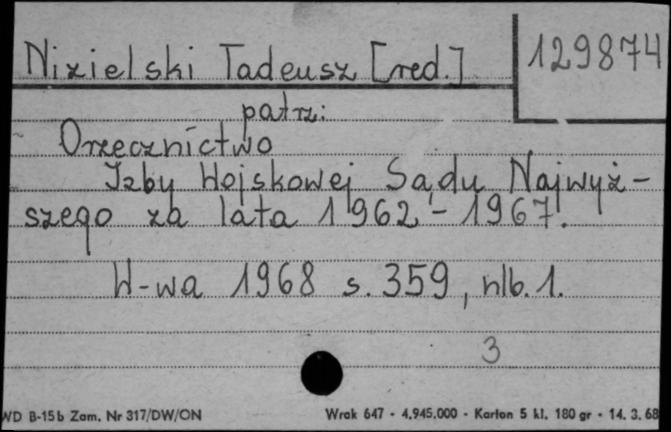 Nizielski Tadeusz [red.]
129874
patrz:
Orzecznictwo
Izby Wojskowej Sądu Najwyż-
szego za lata 1962 - 1967.
W-wa 1968 s. 359, nlb. 1.
3
WD B-15b Zam. Nr 317/DW/ON
Wrak 647 - 4.945.000 - Karton 5 kl. 180 gr - 14. 3. 68